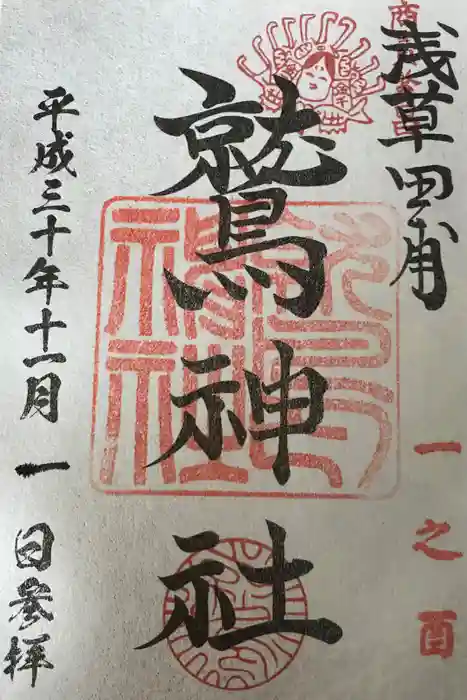 浅草田甫
一之酉
鷲神社
平成三十年十一月一日参拝